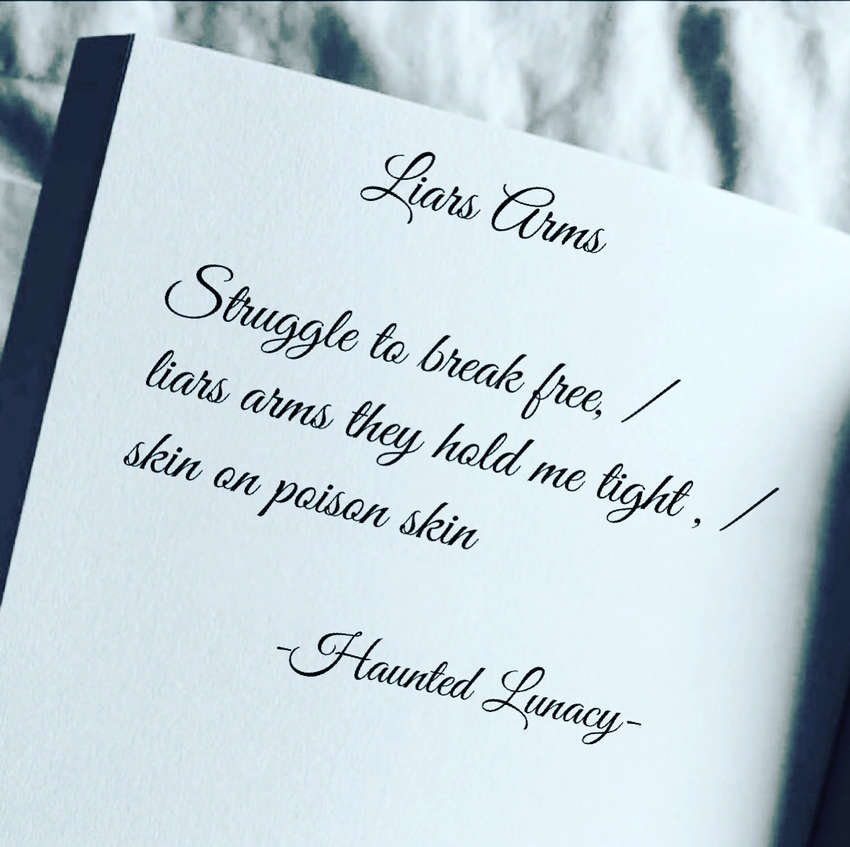 Liars Arms
Struggle to break free, /
liars arms they hold me tight , /
skin on poison skin
-Haunted Lunacy-